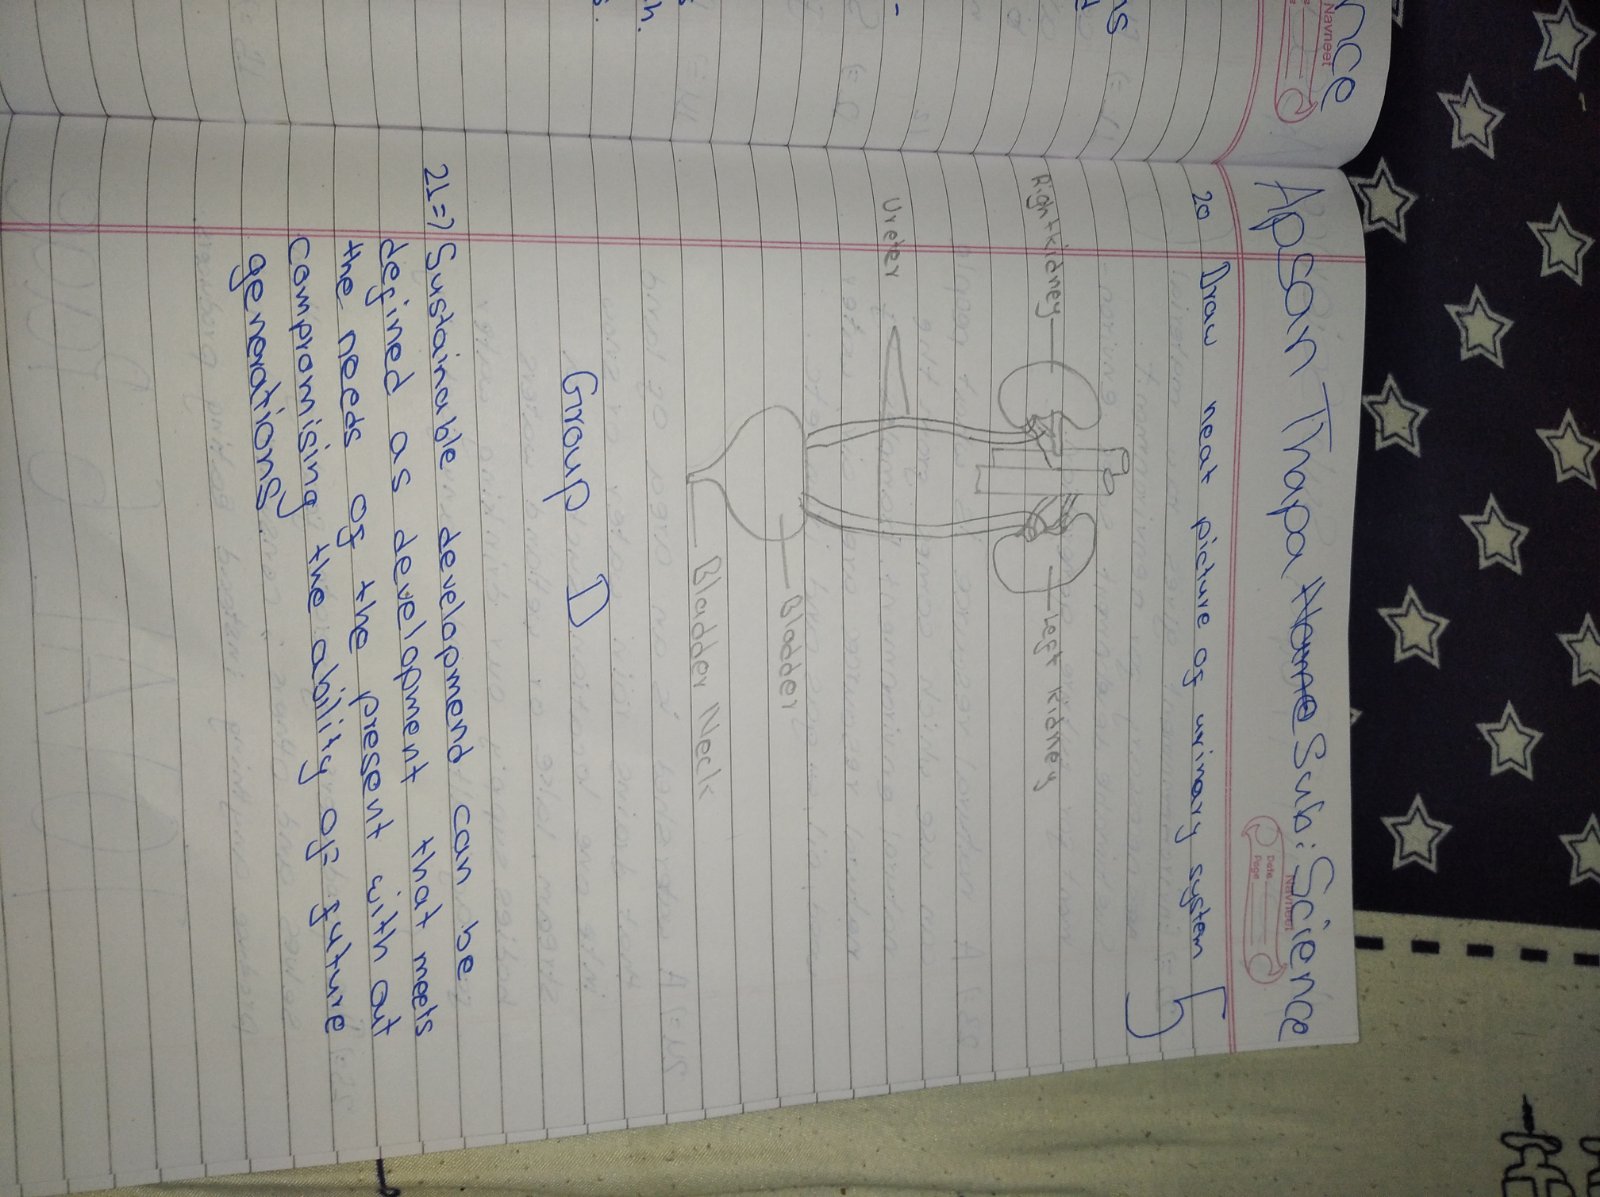 Apsan Thapa Sub: Science
Navneet
Date
Page
20 Draw neat picture of urinary system
Right kidney
Left kidney
Ureter
Bladder
Bladder Neck
Group D
21=> Sustainable developmend can be
defined as development that meets
the needs of the present with out
compromising the ability of future
generations
nce
Navneet